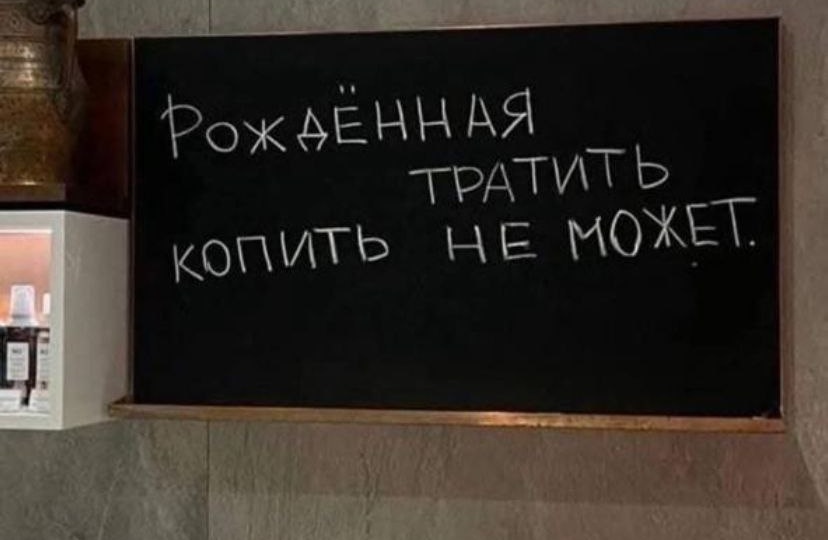 Рождённая
тратить
копить не может.